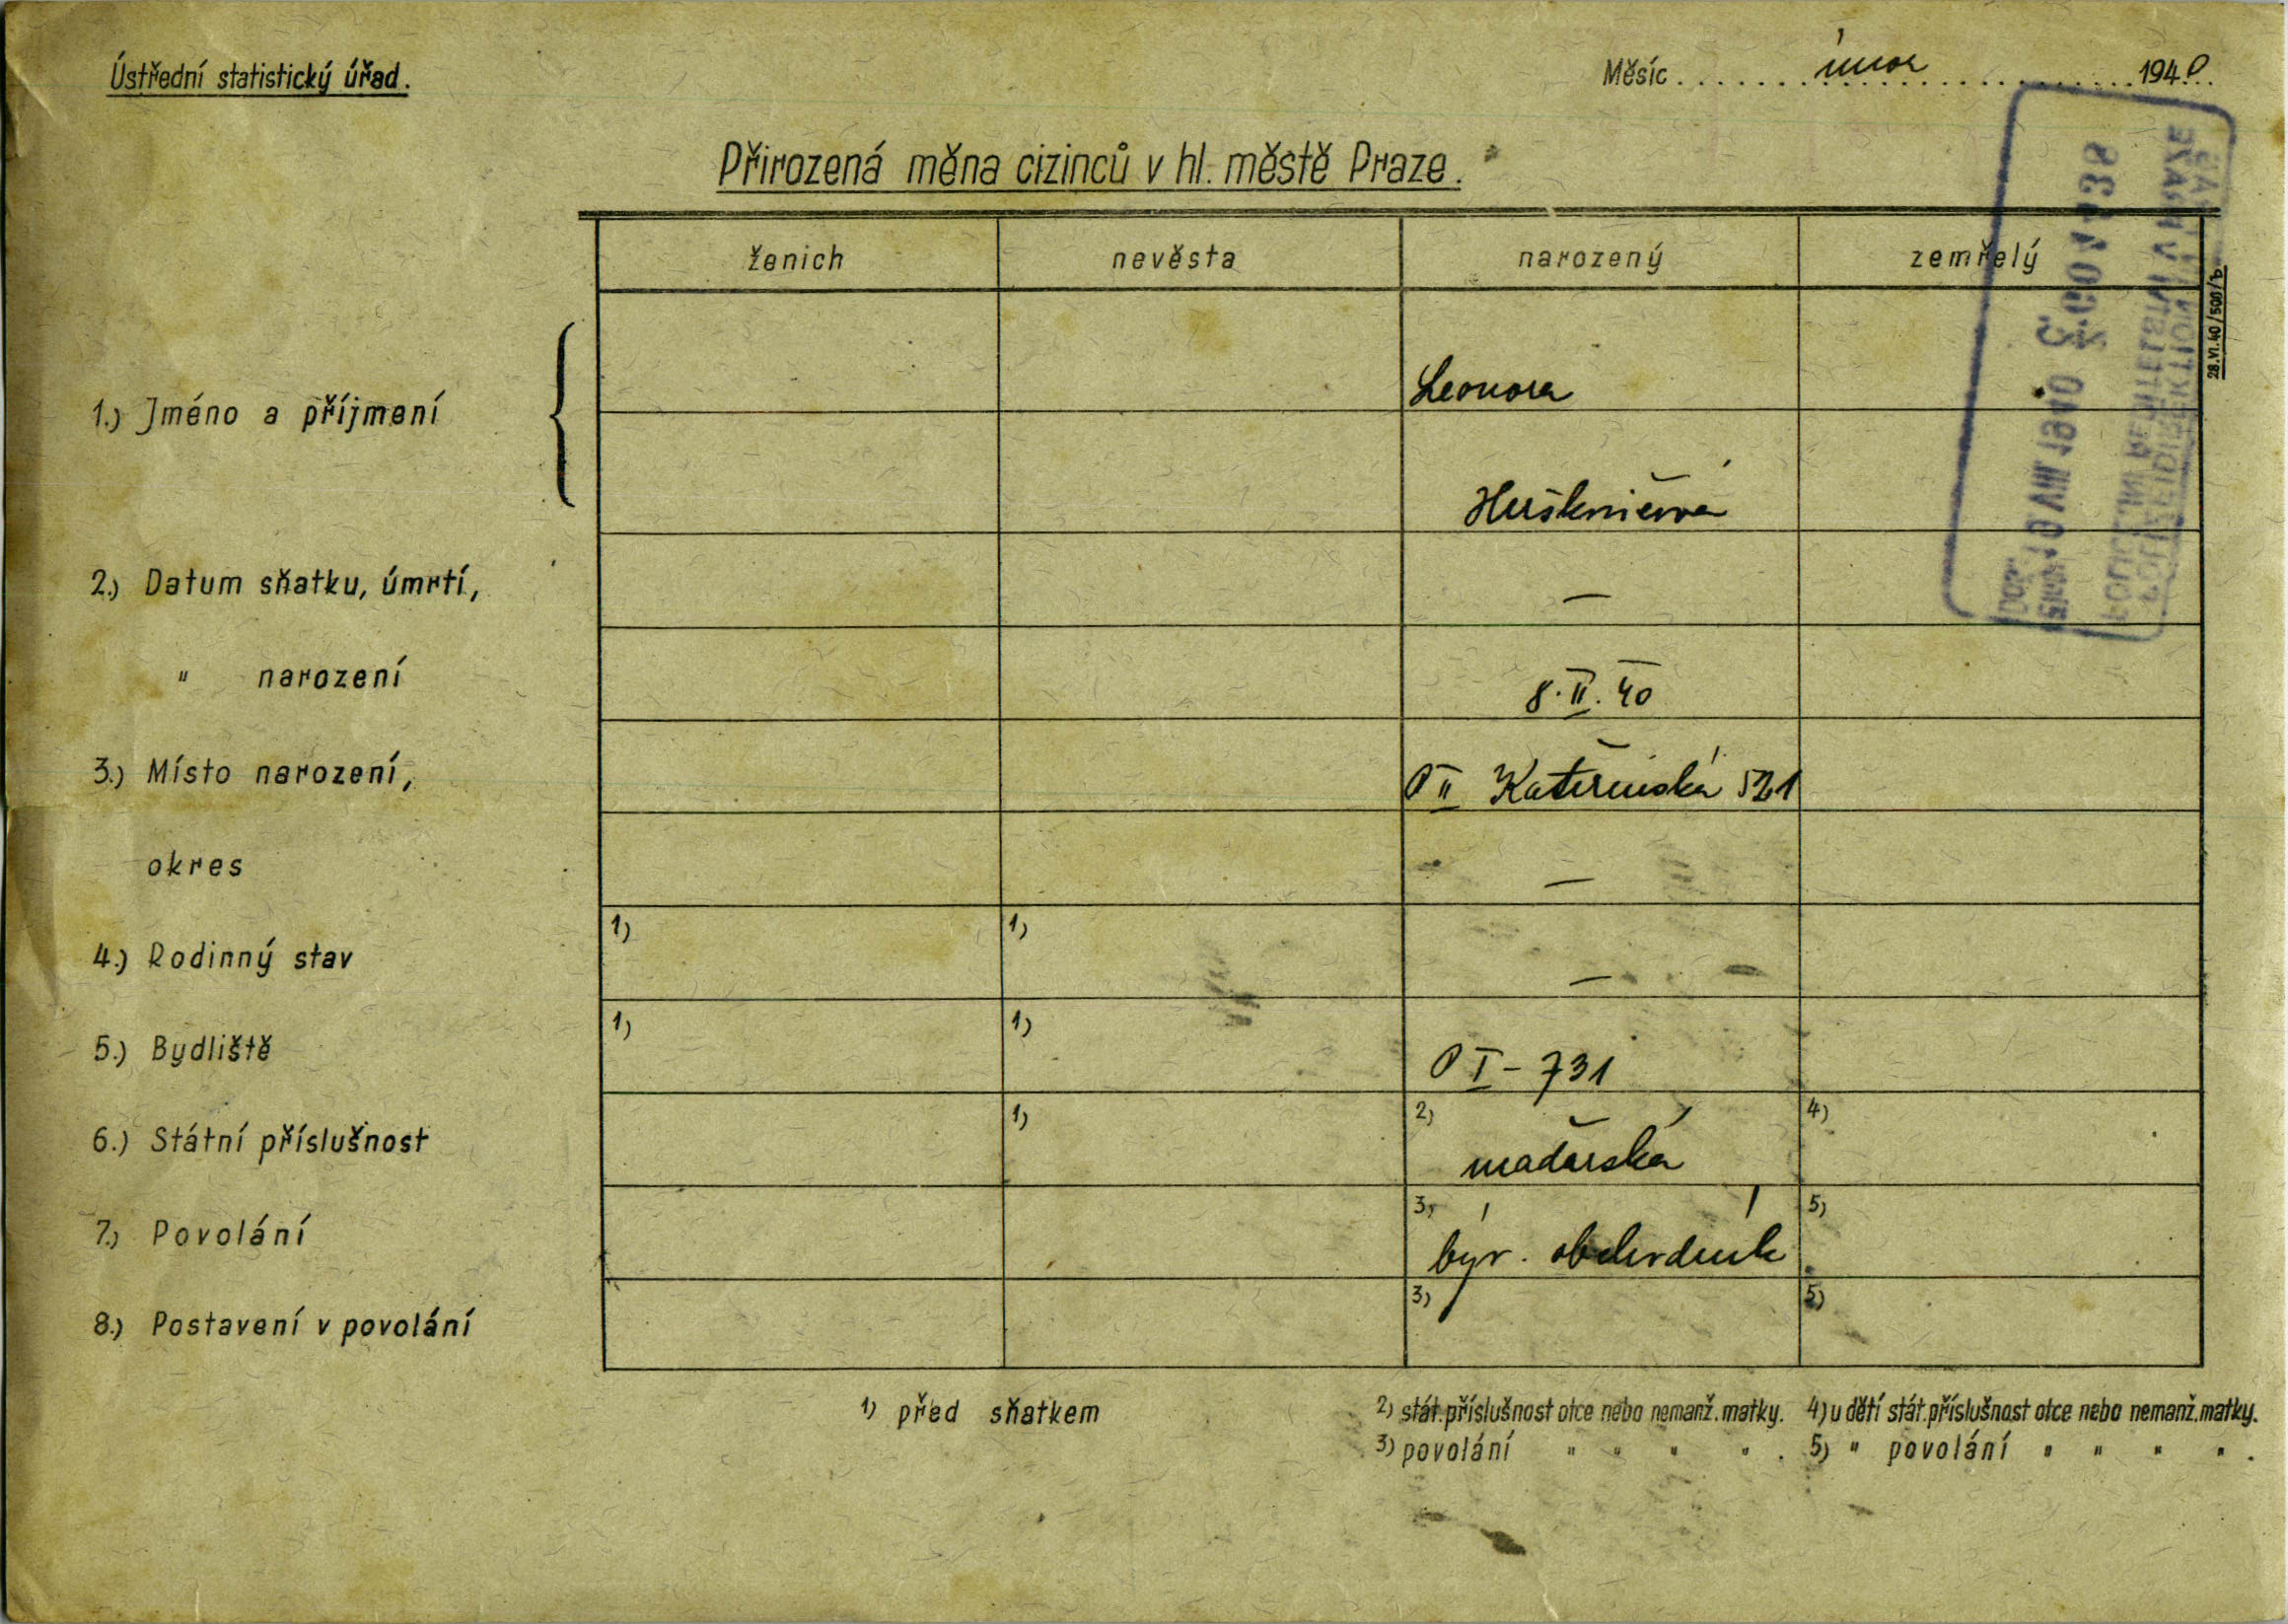 Ústřední statistický úřad.
Měsíc únor 1940
Přirozená měna cizinců v hl. městě Praze.
ženich nevěsta narozený zemřelý
28.VI.40/500/b.
Leonora
1.) Jméno a příjmení
2.) Datum sňatku, úmrtí, —
" narození 8.II.40
3.) Místo narození, P II Kateřinská 521
okres —
4.) Rodinný stav 1) 1) —
5.) Bydliště 1) 1) P I - 731
6.) Státní příslušnost 1) 2) maďarská 4)
7.) Povolání 3) býv. obchodník 5)
8.) Postavení v povolání 3) 5)
1) před sňatkem
2) stát.příslušnost otce nebo nemanž.matky. 4) u dětí stát.příslušnost otce nebo nemanž.matky.
3) povolání " " " " . 5) " povolání " " " " .